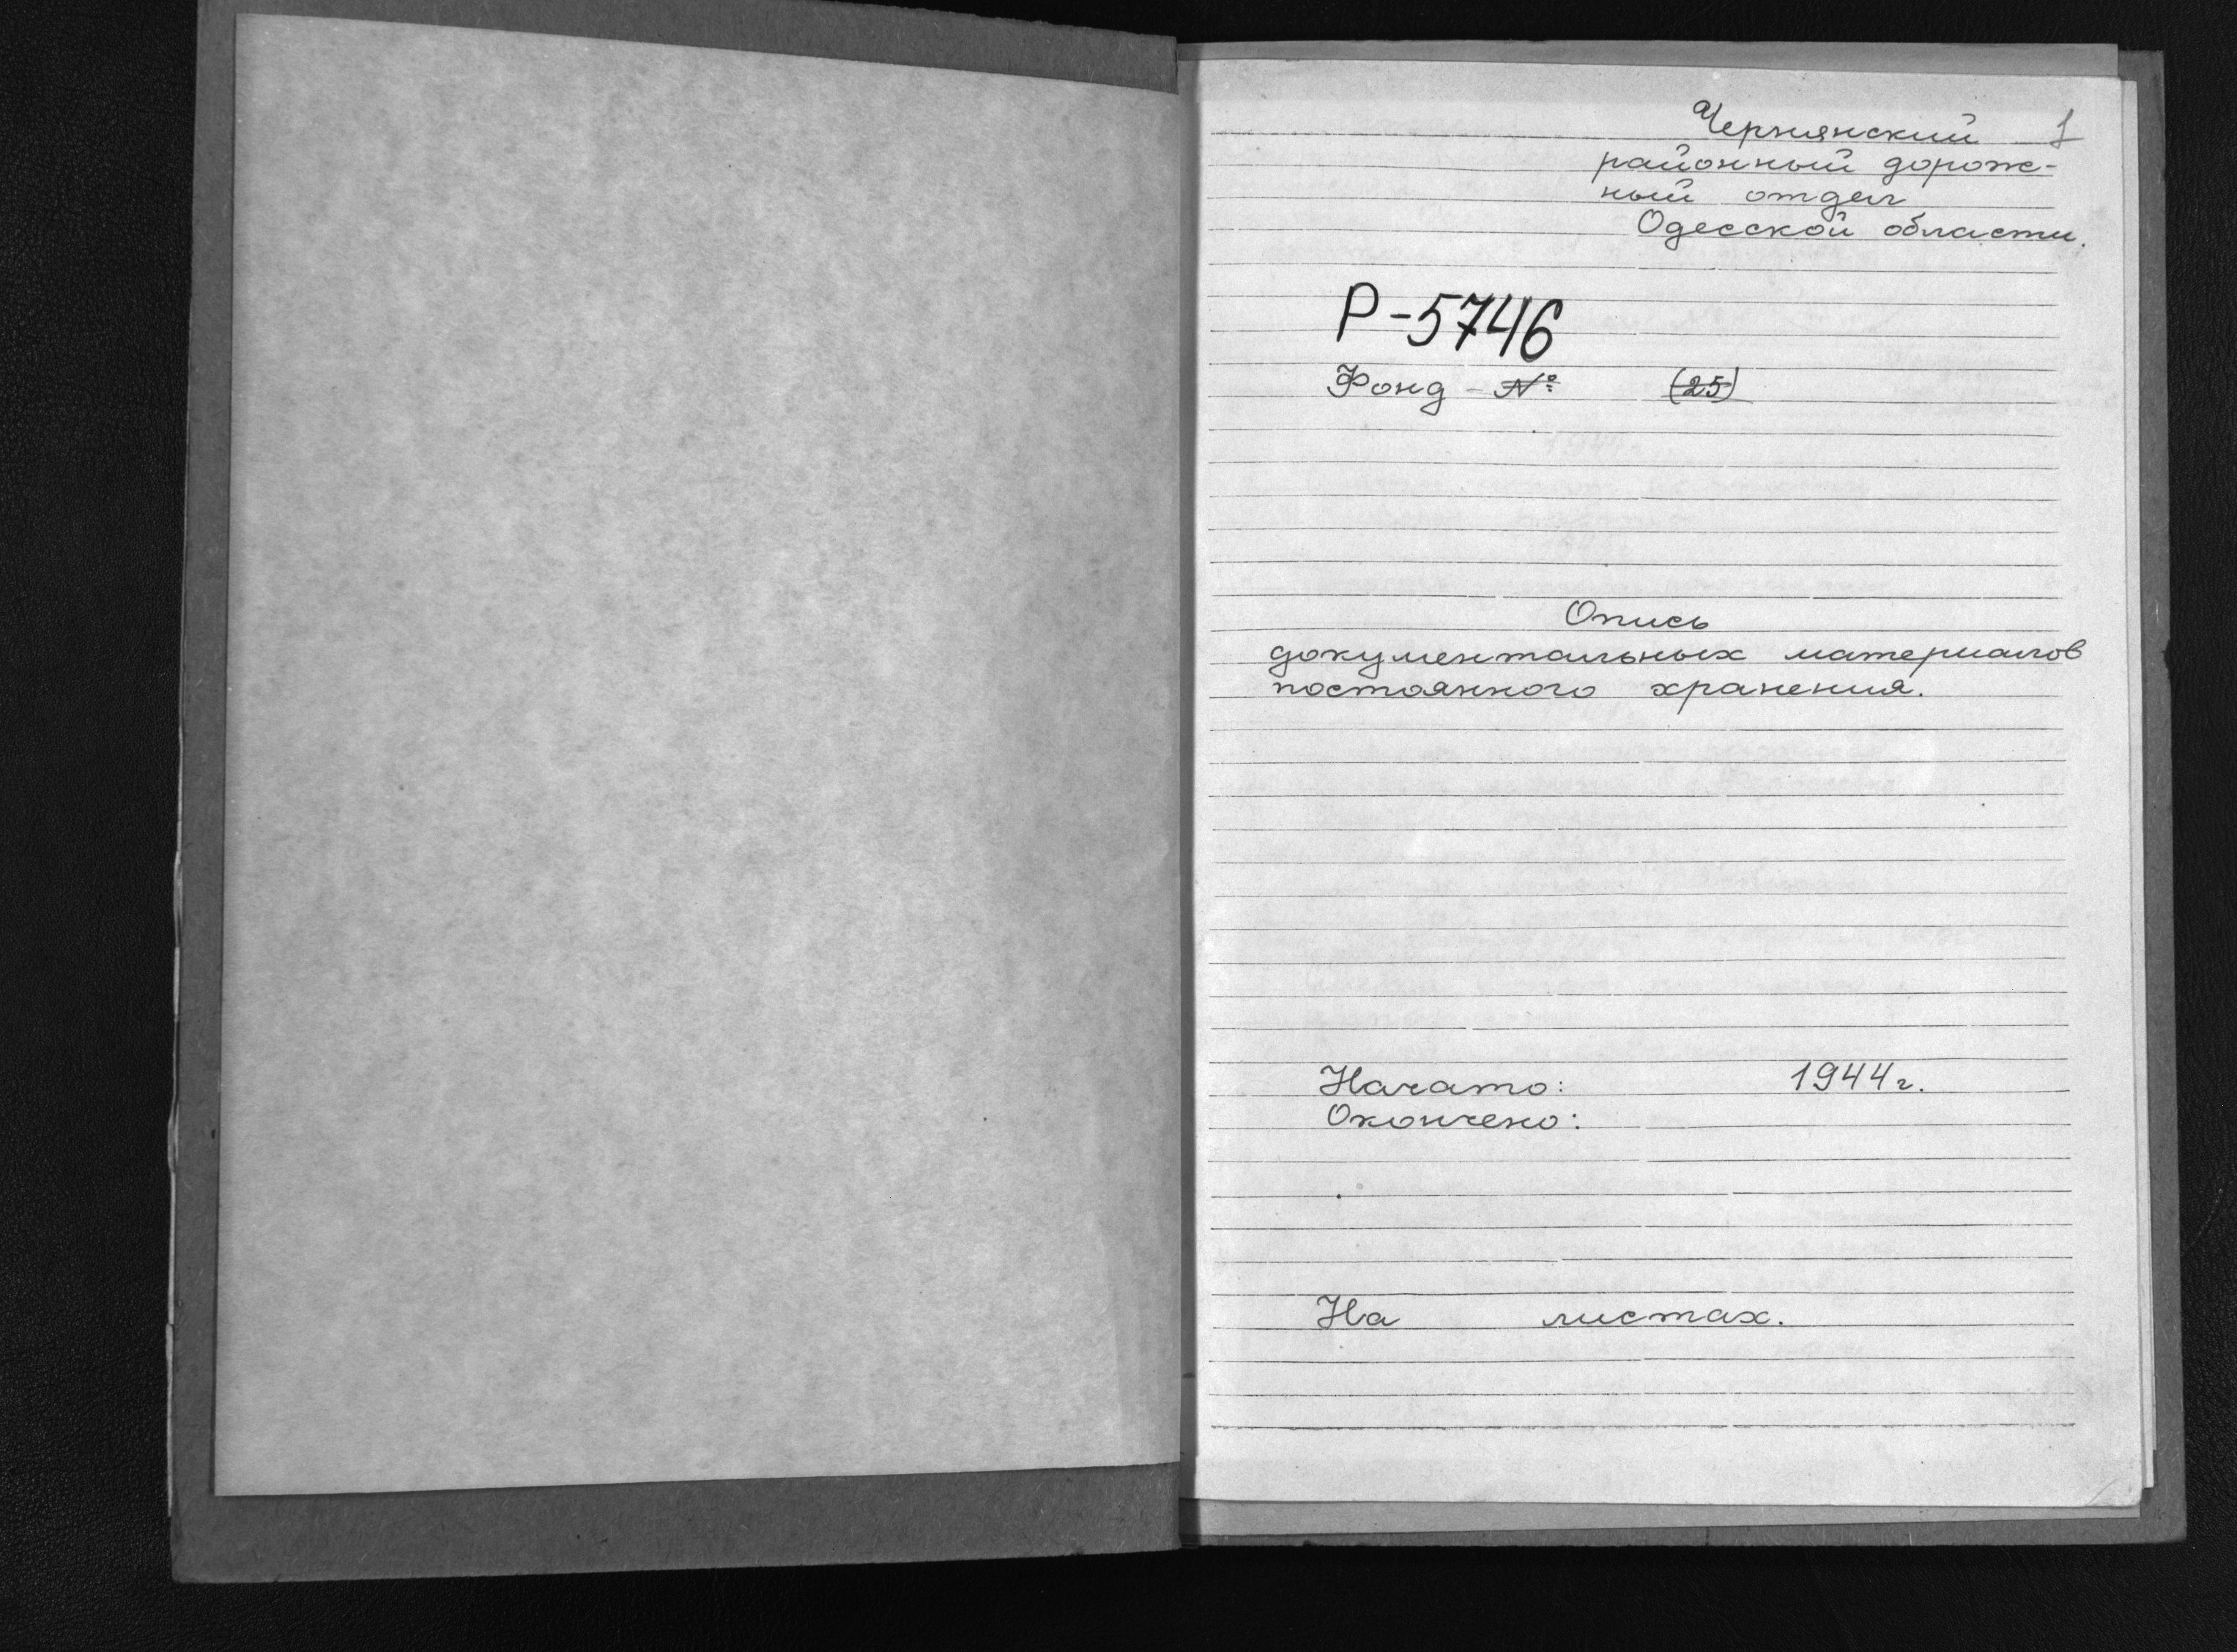 Чернянский 1
районный дорож-
ный отдел
Одесской области.
Р-5746
Фонд - № (25)
Опись
документальных материалов
постоянного хранения.
Начато: 1944 г.
Окончено:
На листах.